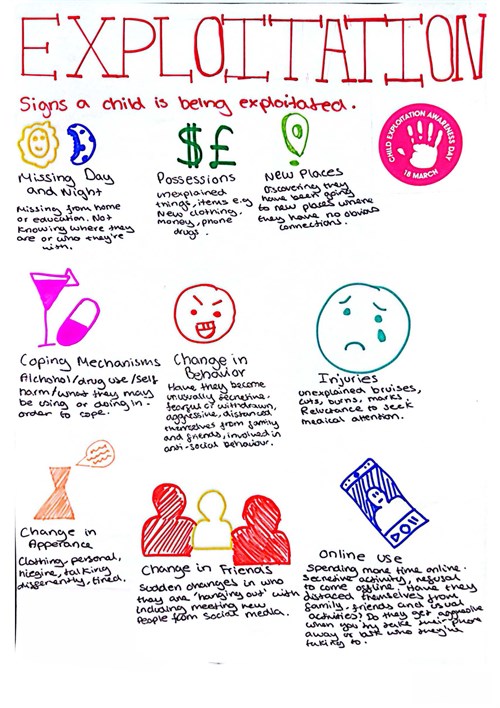 EXPLOITATION
Signs a child is being exploitated.
CHILD EXPLOITATION AWARENESS DAY
18 MARCH
Missing Day
and Night
Missing from home
or education. Not
knowing where they
are or who they're
with.
$£
Possessions
unexplained
things, items e.g
New clothing,
money, phone
drugs.
New Places
Discovering they
have been going
to new places where
they have no obvious
connections.
Coping Mechanisms
Alchohol/drug use/self
harm/what they may
be using or doing in
order to cope.
Change in
Behavior
Have they become
unusually secretive,
fearful or withdrawn,
aggressive, distanced
themselves from family
and friends, involved in
anti-social behaviour.
Injuries
unexplained bruises,
cuts, burns, marks.
Reluctance to seek
medical attention.
Change in
Apperance
Clothing, personal,
hiegine, talking
differently, tired.
Change in Friends
Sudden changes in who
they are 'hanging out' with
including meeting new
people from social media.
Online use
Spending more time online.
Secretive activity, refusal
to come offline. Have they
distaced themselves from
family, friends and usual
activities? Do they get aggressive
when you try take their phone
away or ask who they're
talking to.